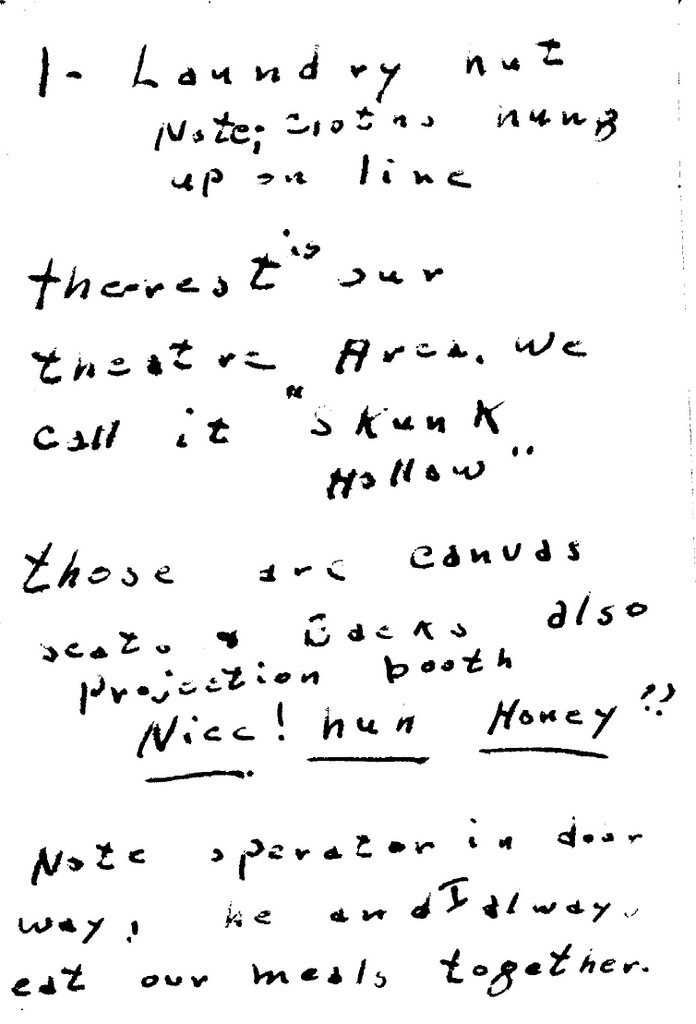 1- Laundry hut
Note; cloths hung
up on line
the rest is our
theatre Area. We
call it "Skunk
Hollow"
those are canvas
seats & Backs also
projection booth
Nice! huh Honey??
Note operator in door
way, he and I always
eat our meals together.